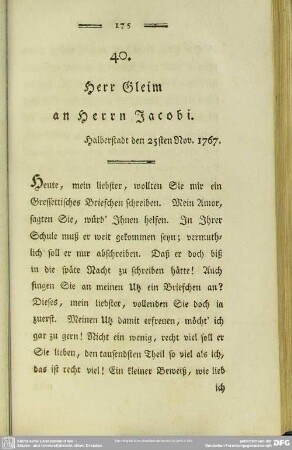 175
40.
Herr Gleim
an Herrn Jacobi.
Halberstadt den 25sten Nov. 1767.
Heute, mein liebster, wollten Sie mir ein
Gressettisches Briefchen schreiben. Mein Amor,
sagten Sie, würd' Ihnen helfen. In Ihrer
Schule muß er weit gekommen seyn; vermuth-
lich soll er nur abschreiben. Daß er doch biß
in die späte Nacht zu schreiben hätte! Auch
fingen Sie an meinen Utz ein Briefchen an?
Dieses, mein liebster, vollenden Sie doch ja
zuerst. Meinen Utz damit erfreuen, möcht' ich
gar zu gern! Nicht ein wenig, recht viel soll er
Sie lieben, den tausendsten Theil so viel als ich,
das ist recht viel! Ein kleiner Beweiß, wie lieb
ich